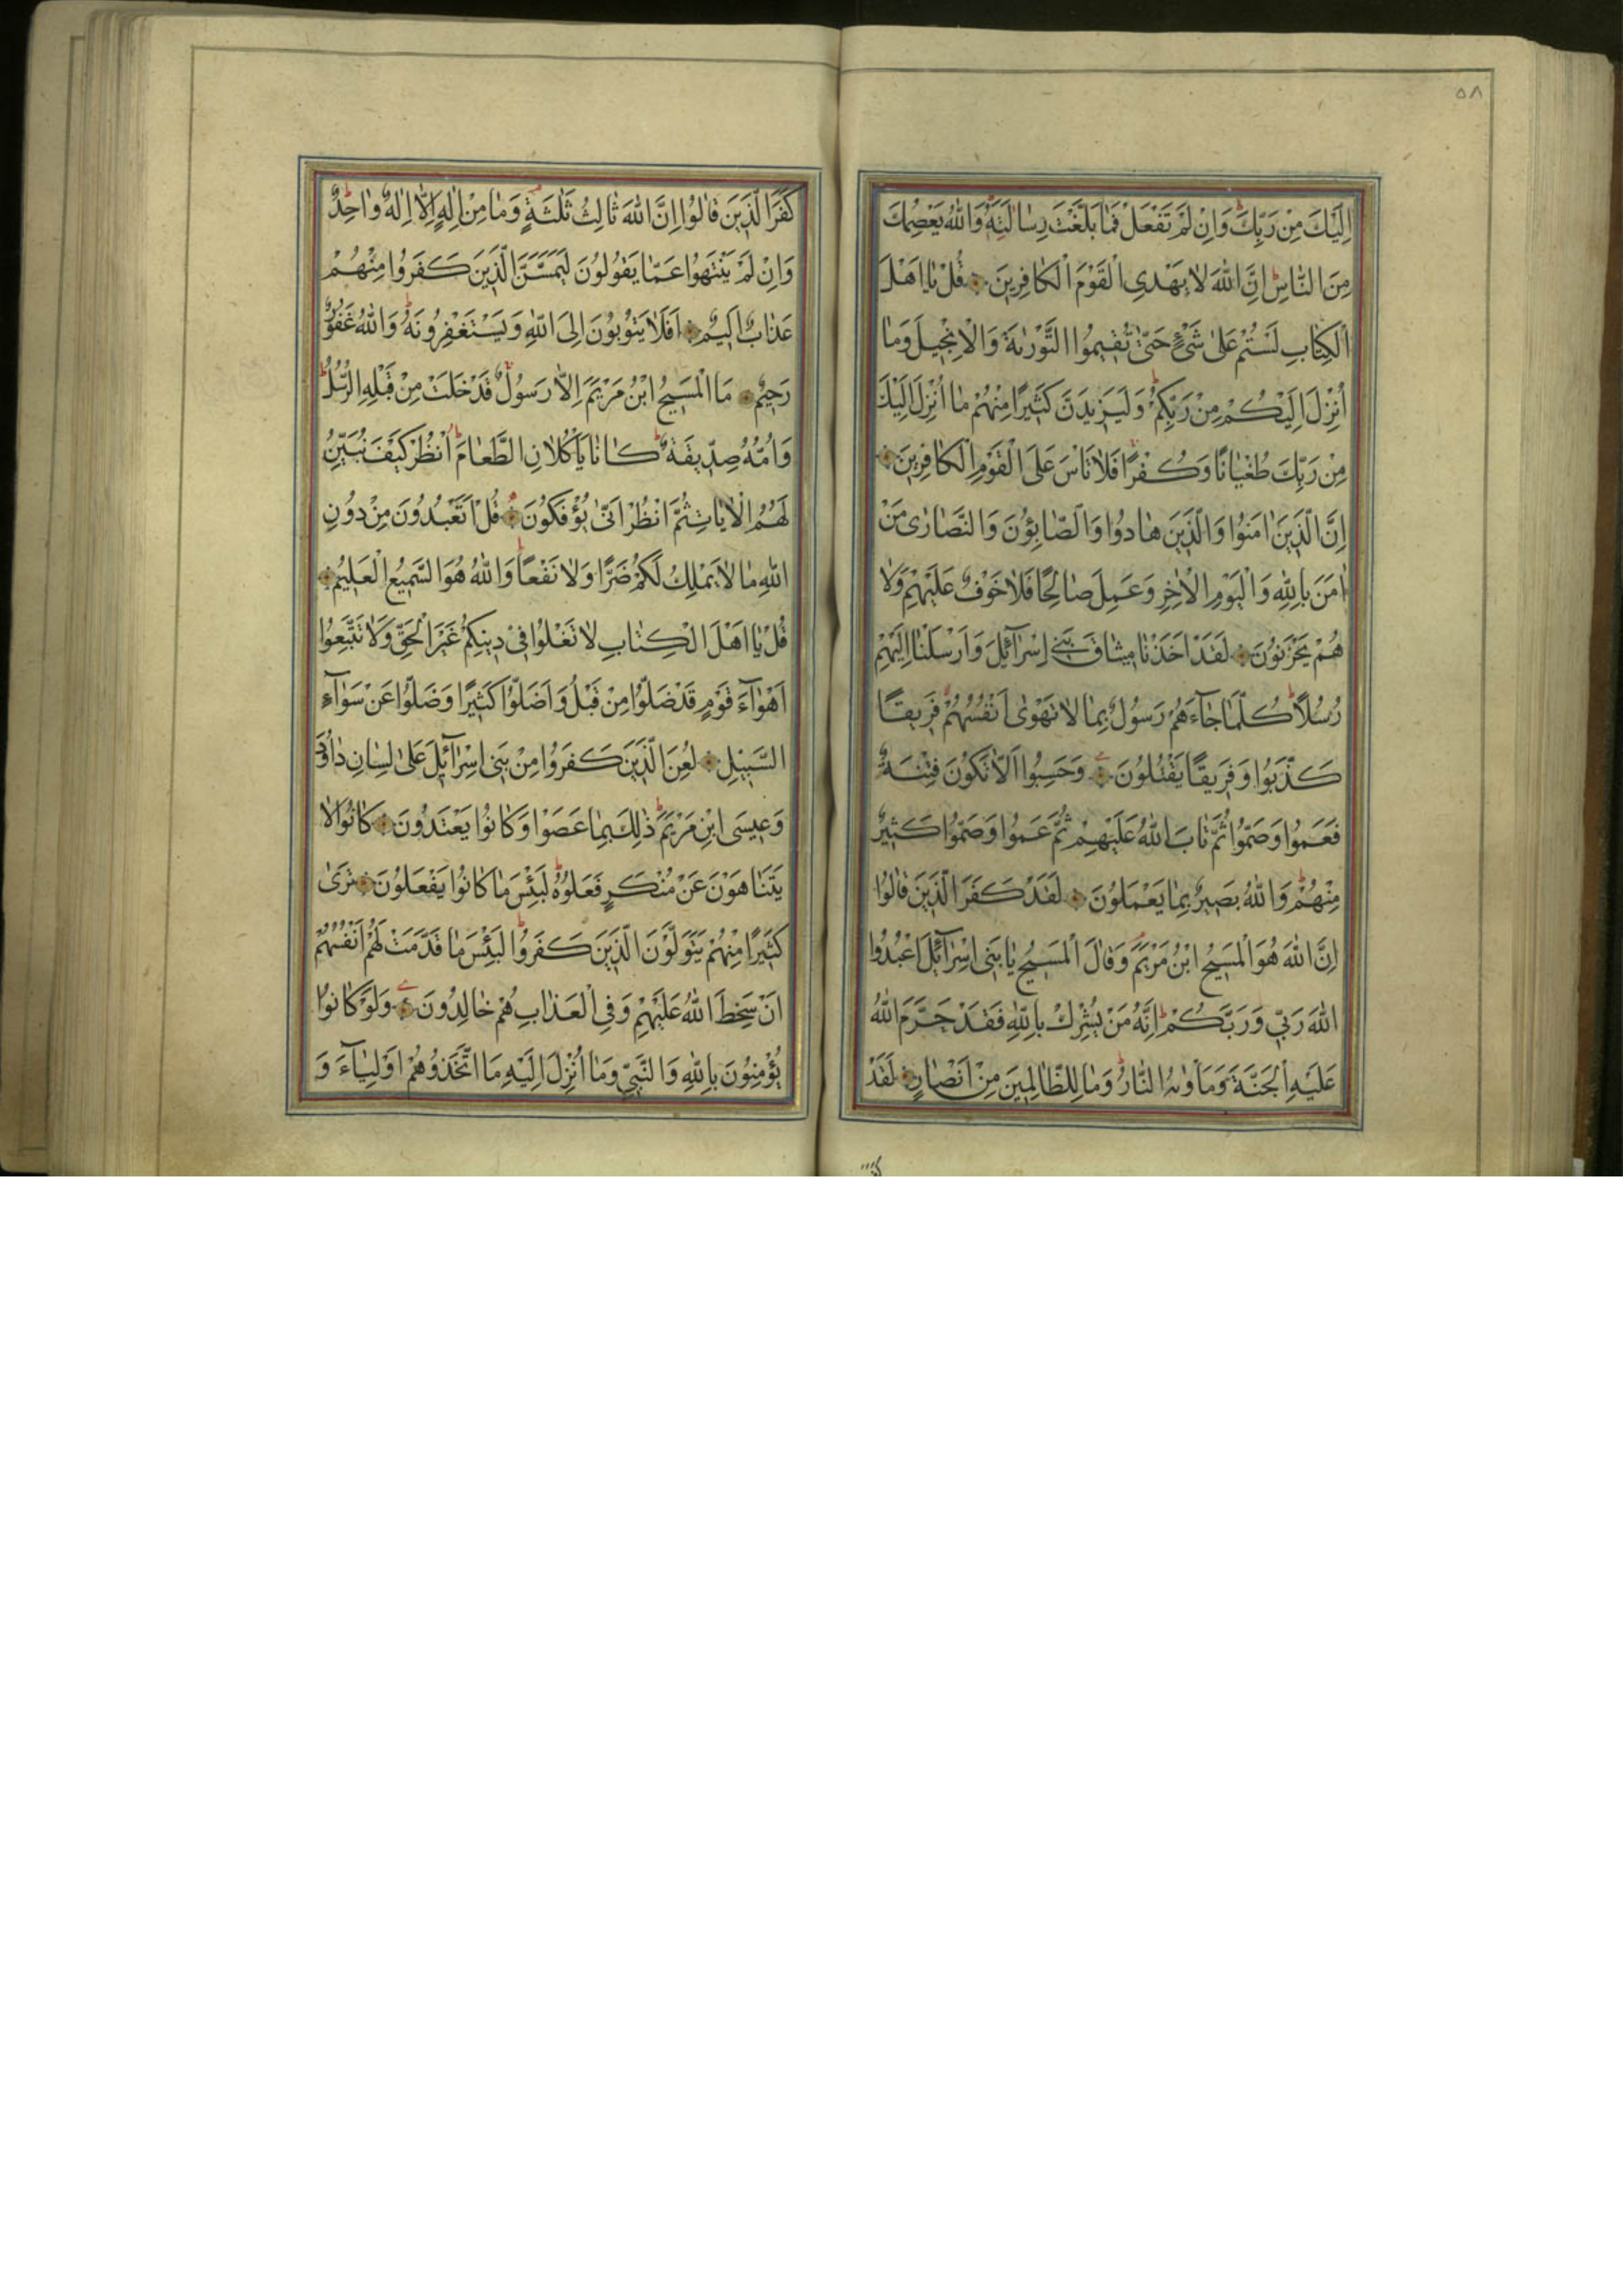 ٥٨
اِلَيْكَ مِنْ رَبِّكَ وَاِنْ لَمْ تَفْعَلْ فَمَا بَلَّغْتَ رِسَالَتَهُ وَاللّٰهُ يَعْصِمُكَ
مِنَ النَّاسِ اِنَّ اللّٰهَ لَا يَهْدِى الْقَوْمَ الْكَافِرِينَ قُلْ يَا اَهْلَ
الْكِتَابِ لَسْتُمْ عَلٰى شَىْءٍ حَتّٰى تُقِيمُوا التَّوْرٰيةَ وَالْاِنْجِيلَ وَمَا
اُنْزِلَ اِلَيْكُمْ مِنْ رَبِّكُمْ وَلَيَزِيدَنَّ كَثِيرًا مِنْهُمْ مَا اُنْزِلَ اِلَيْكَ
مِنْ رَبِّكَ طُغْيَانًا وَكُفْرًا فَلَا تَاْسَ عَلَى الْقَوْمِ الْكَافِرِينَ
اِنَّ الَّذِينَ اٰمَنُوا وَالَّذِينَ هَادُوا وَالصَّابِئُونَ وَالنَّصَارٰى مَنْ
اٰمَنَ بِاللّٰهِ وَالْيَوْمِ الْاٰخِرِ وَعَمِلَ صَالِحًا فَلَا خَوْفٌ عَلَيْهِمْ وَلَا
هُمْ يَحْزَنُونَ لَقَدْ اَخَذْنَا مِيثَاقَ بَنِى اِسْرَآئِلَ وَاَرْسَلْنَا اِلَيْهِمْ
رُسُلًا كُلَّمَا جَآءَهُمْ رَسُولٌ بِمَا لَا تَهْوٰى اَنْفُسُهُمْ فَرِيقًا
كَذَّبُوا وَفَرِيقًا يَقْتُلُونَ وَحَسِبُوا اَلَّا تَكُونَ فِتْنَةٌ
فَعَمُوا وَصَمُّوا ثُمَّ تَابَ اللّٰهُ عَلَيْهِمْ ثُمَّ عَمُوا وَصَمُّوا كَثِيرٌ
مِنْهُمْ وَاللّٰهُ بَصِيرٌ بِمَا يَعْمَلُونَ لَقَدْ كَفَرَ الَّذِينَ قَالُوا
اِنَّ اللّٰهَ هُوَ الْمَسِيحُ ابْنُ مَرْيَمَ وَقَالَ الْمَسِيحُ يَا بَنِى اِسْرَآئِلَ اعْبُدُوا
اللّٰهَ رَبِّى وَرَبَّكُمْ اِنَّهُ مَنْ يُشْرِكْ بِاللّٰهِ فَقَدْ حَرَّمَ اللّٰهُ
عَلَيْهِ الْجَنَّةَ وَمَاْوٰيهُ النَّارُ وَمَا لِلظَّالِمِينَ مِنْ اَنْصَارٍ لَقَدْ
كَفَرَ الَّذِينَ قَالُوا اِنَّ اللّٰهَ ثَالِثُ ثَلٰثَةٍ وَمَا مِنْ اِلٰهٍ اِلَّا اِلٰهٌ وَاحِدٌ
وَاِنْ لَمْ يَنْتَهُوا عَمَّا يَقُولُونَ لَيَمَسَّنَّ الَّذِينَ كَفَرُوا مِنْهُمْ
عَذَابٌ اَلِيمٌ اَفَلَا يَتُوبُونَ اِلَى اللّٰهِ وَيَسْتَغْفِرُونَهُ وَاللّٰهُ غَفُورٌ
رَحِيمٌ مَا الْمَسِيحُ ابْنُ مَرْيَمَ اِلَّا رَسُولٌ قَدْ خَلَتْ مِنْ قَبْلِهِ الرُّسُلُ
وَاُمُّهُ صِدِّيقَةٌ كَانَا يَاْكُلَانِ الطَّعَامَ اُنْظُرْ كَيْفَ نُبَيِّنُ
لَهُمُ الْاٰيَاتِ ثُمَّ انْظُرْ اَنّٰى يُؤْفَكُونَ قُلْ اَتَعْبُدُونَ مِنْ دُونِ
اللّٰهِ مَا لَا يَمْلِكُ لَكُمْ ضَرًّا وَلَا نَفْعًا وَاللّٰهُ هُوَ السَّمِيعُ الْعَلِيمُ
قُلْ يَا اَهْلَ الْكِتَابِ لَا تَغْلُوا فِى دِينِكُمْ غَيْرَ الْحَقِّ وَلَا تَتَّبِعُوا
اَهْوَآءَ قَوْمٍ قَدْ ضَلُّوا مِنْ قَبْلُ وَاَضَلُّوا كَثِيرًا وَضَلُّوا عَنْ سَوَآءِ
السَّبِيلِ لُعِنَ الَّذِينَ كَفَرُوا مِنْ بَنِى اِسْرَآئِلَ عَلٰى لِسَانِ دَاوُدَ
وَعِيسَى ابْنِ مَرْيَمَ ذٰلِكَ بِمَا عَصَوْا وَكَانُوا يَعْتَدُونَ كَانُوا لَا
يَتَنَاهَوْنَ عَنْ مُنْكَرٍ فَعَلُوهُ لَبِئْسَ مَا كَانُوا يَفْعَلُونَ تَرٰى
كَثِيرًا مِنْهُمْ يَتَوَلَّوْنَ الَّذِينَ كَفَرُوا لَبِئْسَ مَا قَدَّمَتْ لَهُمْ اَنْفُسُهُمْ
اَنْ سَخِطَ اللّٰهُ عَلَيْهِمْ وَفِى الْعَذَابِ هُمْ خَالِدُونَ وَلَوْ كَانُوا
يُؤْمِنُونَ بِاللّٰهِ وَالنَّبِىِّ وَمَا اُنْزِلَ اِلَيْهِ مَا اتَّخَذُوهُمْ اَوْلِيَآءَ وَ